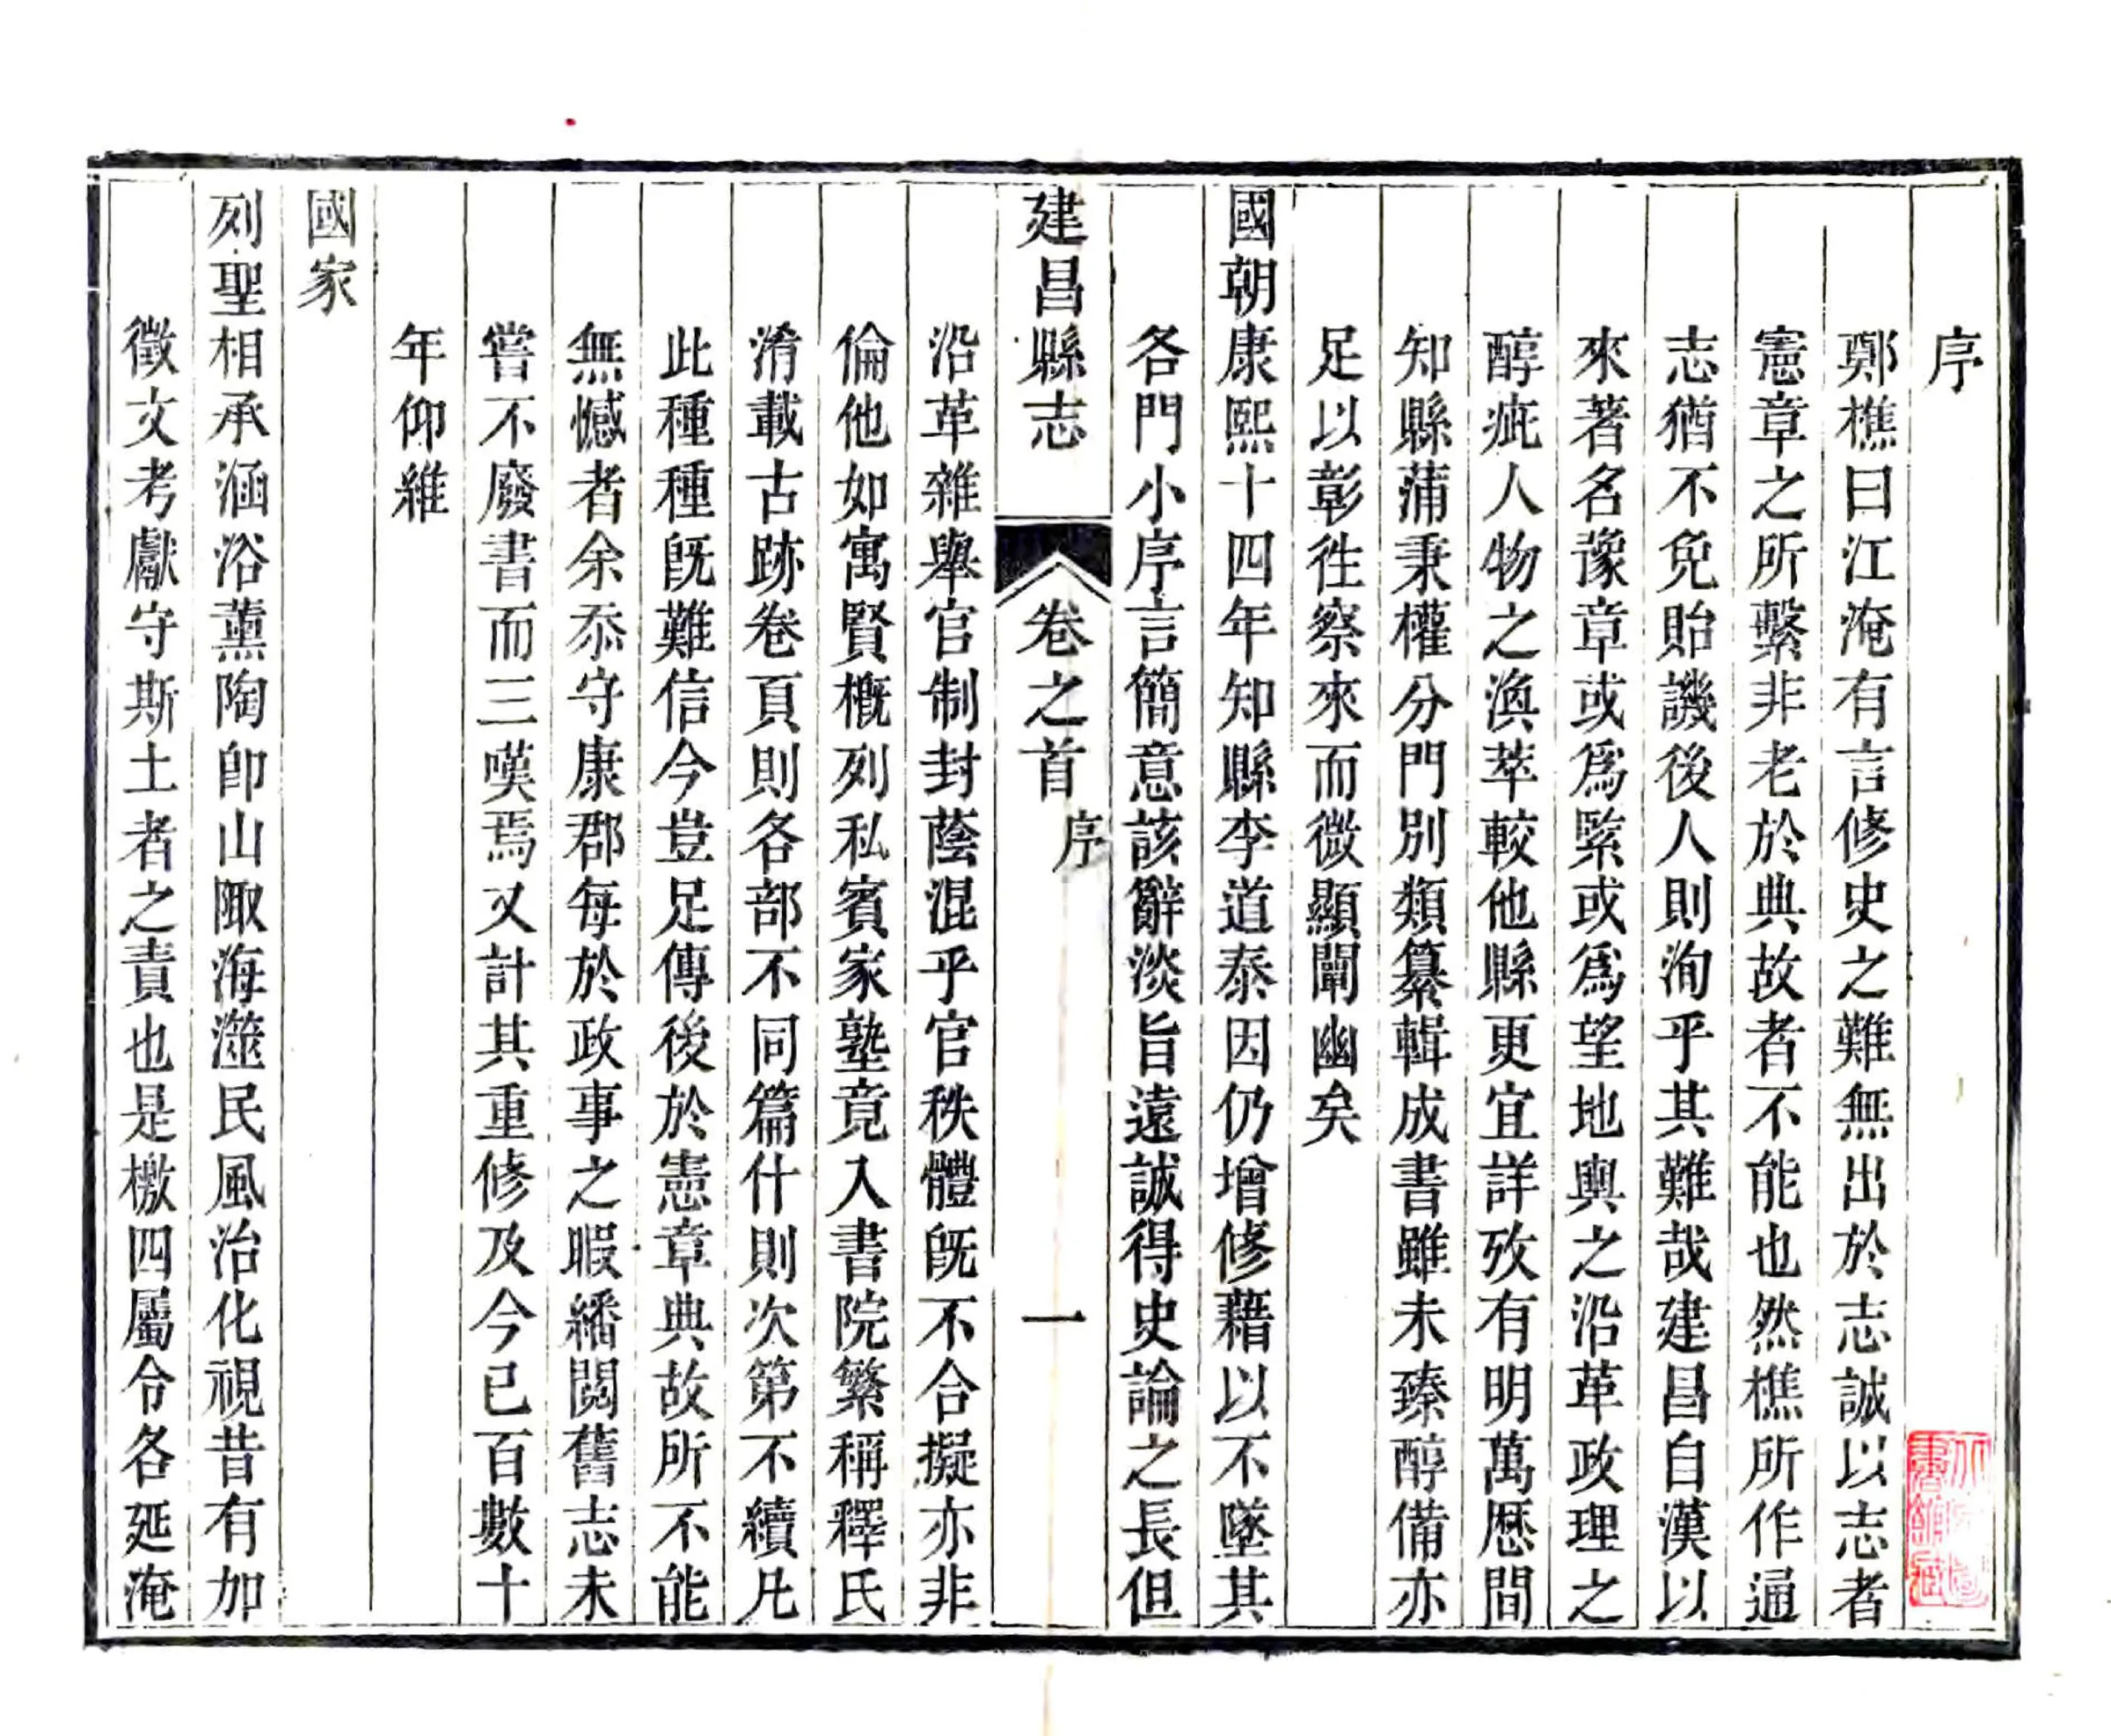 序
鄭樵曰江淹有言修史之難無出於志誠以志者
憲章之所繫非老於典故者不能也然樵所作通
志猶不免貽譏後人則洵乎其難哉建昌自漢以
來著名豫章或爲緊或爲望地輿之沿革政理之
醇疵人物之渙萃較他縣更宜詳攷有明萬歷間
知縣蒲秉權分門別類纂輯成書雖未臻醇備亦
足以彰徃察來而微顯闡幽矣
國朝康熙十四年知縣李道泰因仍增修藉以不墜其
各門小序言簡意該辭淡旨遠誠得史論之長但
建昌縣志 卷之首 序 一
沿革雜舉官制封蔭混乎官秩體旣不合擬亦非
倫他如寓賢槪列私賓家塾竟入書院繁稱釋氏
淆載古跡卷頁則各部不同篇什則次第不續凡
此種種旣難信今豈足傳後於憲章典故所不能
無憾者余忝守康郡每於政事之暇繙閱舊志未
嘗不廢書而三嘆焉又計其重修及今已百數十
年仰維
國家
列聖相承涵浴薰陶卽山陬海澨民風治化視昔有加
徵文考獻守斯土者之責也是檄四屬令各延淹